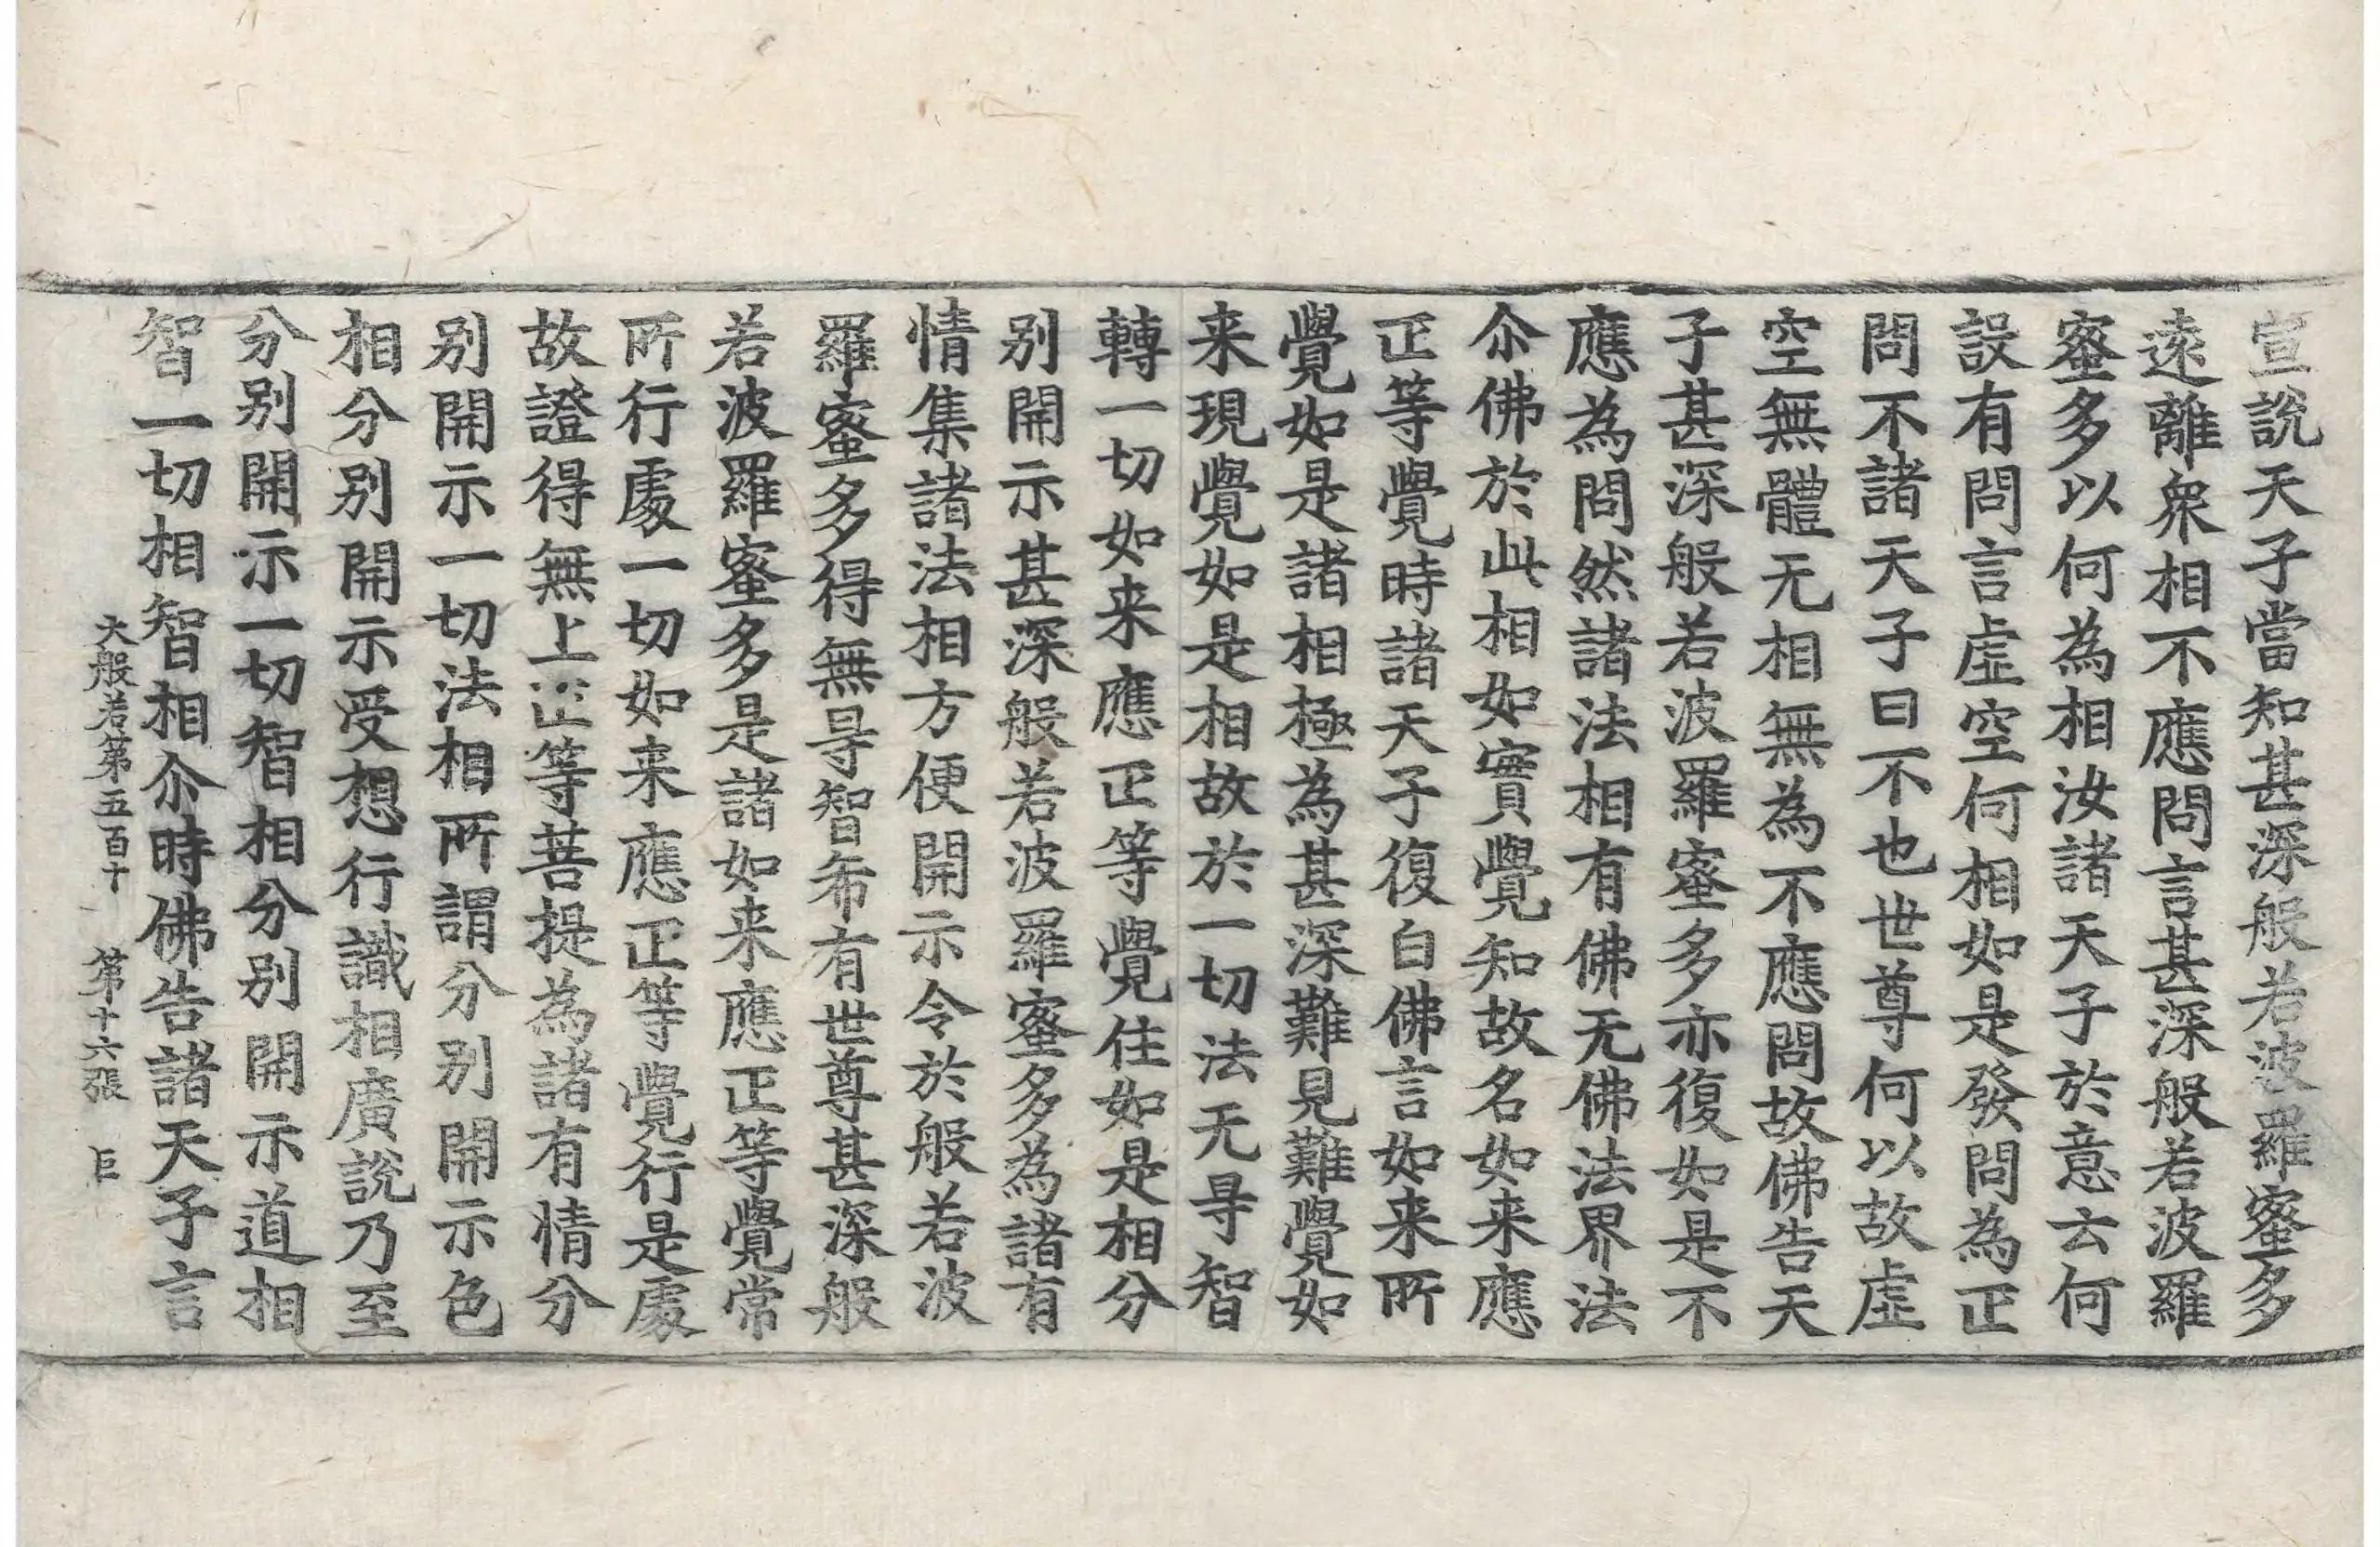 宣說天子當知甚深般若波羅蜜多
遠離衆相不應問言甚深般若波羅
蜜多以何為相汝諸天子於意云何
設有問言虛空何相如是發問為正
問不諸天子曰不也世尊何以故虛
空無體无相無為不應問故佛告天
子甚深般若波羅蜜多亦復如是不
應為問然諸法相有佛无佛法界法
尒佛於此相如實覺知故名如来應
正等覺時諸天子復白佛言如来所
覺如是諸相極為甚深難見難覺如
来現覺如是相故於一切法无㝵智
轉一切如来應正等覺住如是相分
别開示甚深般若波羅蜜多為諸有
情集諸法相方便開示令於般若波
羅蜜多得無㝵智希有世尊甚深般
若波羅蜜多是諸如来應正等覺常
所行處一切如来應正等覺行是處
故證得無上正等菩提為諸有情分
别開示一切法相所謂分别開示色
相分别開示受想行識相廣說乃至
分别開示一切智相分别開示道相
智一切相智相尒時佛告諸天子言
大般若第五百十 第十六張 巨